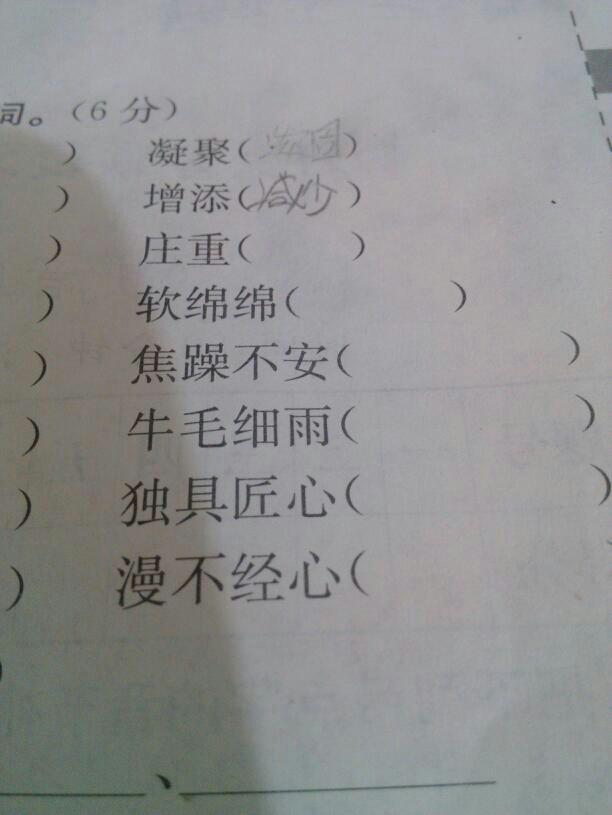 词。(6分)
) 凝聚( )
) 增添(减少)
) 庄重( )
) 软绵绵( )
) 焦躁不安( )
) 牛毛细雨( )
) 独具匠心( )
) 漫不经心(
)
、